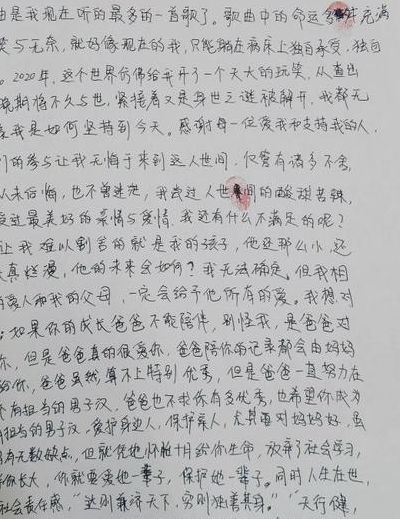 由是我现在听的最多的一首歌了。歌曲中的命运多舛充满
笑与无奈，就好像现在的我，只能躺在病床上独自承受，独自
。2020年，这个世界仿佛给我开了一个天大的玩笑，从查出
晚期将不久与世，紧接着又是身世之谜被解开，我都无
象我是如何坚持到今天。感谢每一位爱我和支持我的人，
们的参与让我无悔于来到这人世间，仅管有诸多不舍，
从未后悔，也不曾迷茫，我尝过人世间的酸甜苦辣，
受过最美好的亲情与爱情，我还有什么不满足的呢？
让我难以割舍的就是我的孩子，他还那么小，还
天真烂漫，他的未来会如何？我无法确定，但我相
的爱人和我的父母，一定会给予他所有的爱。我想对
：如果你的成长爸爸不能陪伴，别怪我，是爸爸对
你，但是爸爸真的很爱你，爸爸陪你的记录都会由妈妈
给你，爸爸虽然算不上特别优秀，但是爸爸一直努力在
个有担当的男子汉，爸爸也不求你有多优秀，也希望你成为
有担当的男子汉，爱护身边人，保护亲人，尤其要对妈妈好，虽
有无数缺点，但就凭她怀胎十月给你生命，放弃了社会学习，
你长大，你就要爱她一辈子，保护她一辈子。同时人生在世，
社会责任感，“达则兼济天下，穷则独善其身。”“天行健，